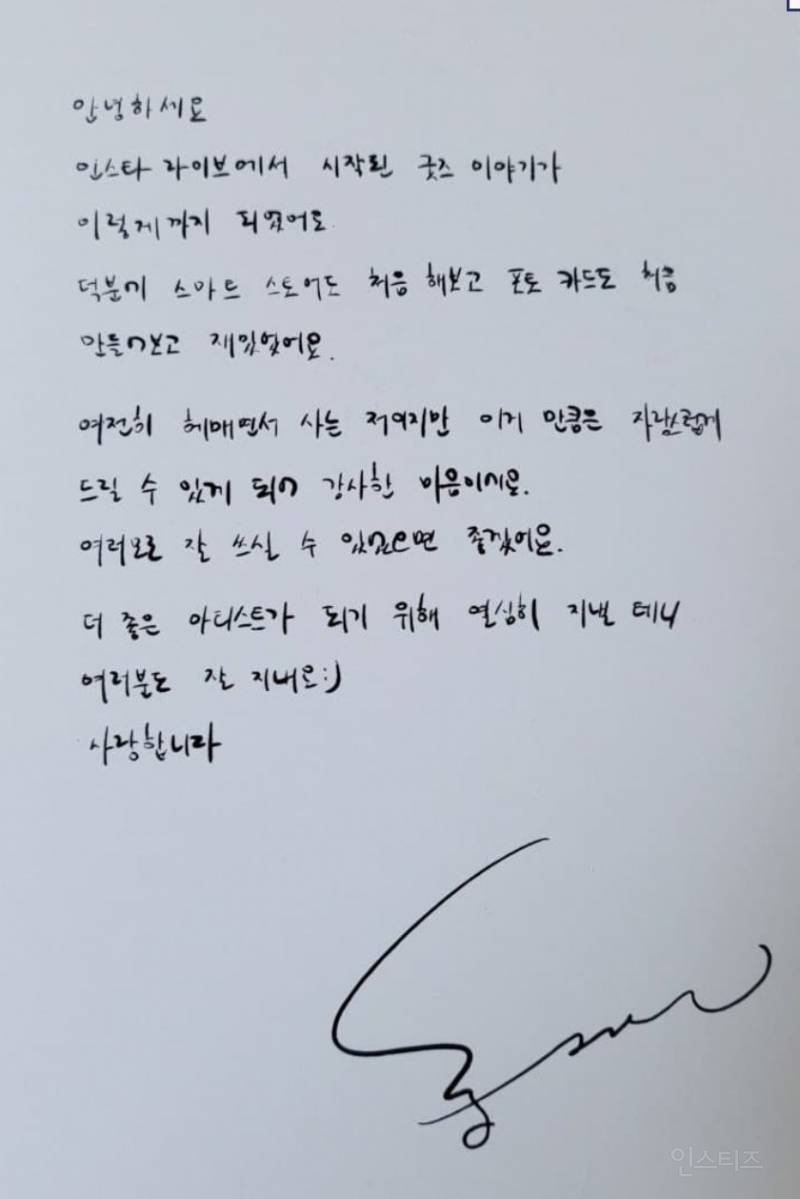 안녕하세요
인스타 라이브에서 시작된 굿즈 이야기가
이렇게까지 되었어요
덕분에 스마트 스토어도 처음 해보고 포토 카드도 처음
만들어보고 재밌었어요.
여전히 헤매면서 사는 저이지만 이거 만큼은 자랑스럽게
드릴 수 있게 되어 감사한 마음이에요.
여러모로 잘 쓰실 수 있었으면 좋겠어요.
더 좋은 아티스트가 되기 위해 열심히 지낼 테니
여러분도 잘 지내요:)
사랑합니다
인스티즈